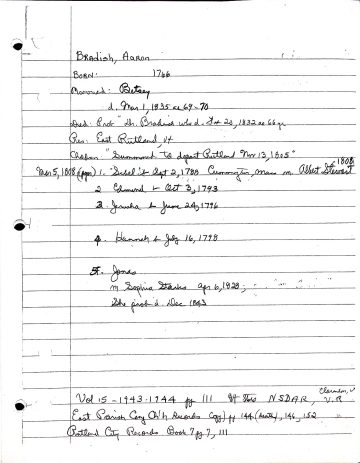 Bradish, Aaron
Born: 1766
Married: Betsey
d. Mar 1, 1835 ae 69-70
Died: Prob "Dr. Bradish who d. 20, 1832 ae 66 yr
Res: East Rutland, Vt
"Summoned to depart Rutland Nov 13, 1805"
1808
Mar 5, 1818 1. "Sibel" b Sept 2, 1788 Cummington, Mass m. Albert Stewart
2. Edmund b Oct 3, 1793
3. Jerusha b June 24, 1796
4. Hannah b July 16, 1798
5. Jonas
m Sophia Starks Apr 6, 1828;
She prob d. Dec 1843
Vol 15 - 1943-1944 pg 111 NSDAR,
East Parish Cong Ch'h Records pg 144, 146, 152
Rutland City Records Book 7 pg 7, 111